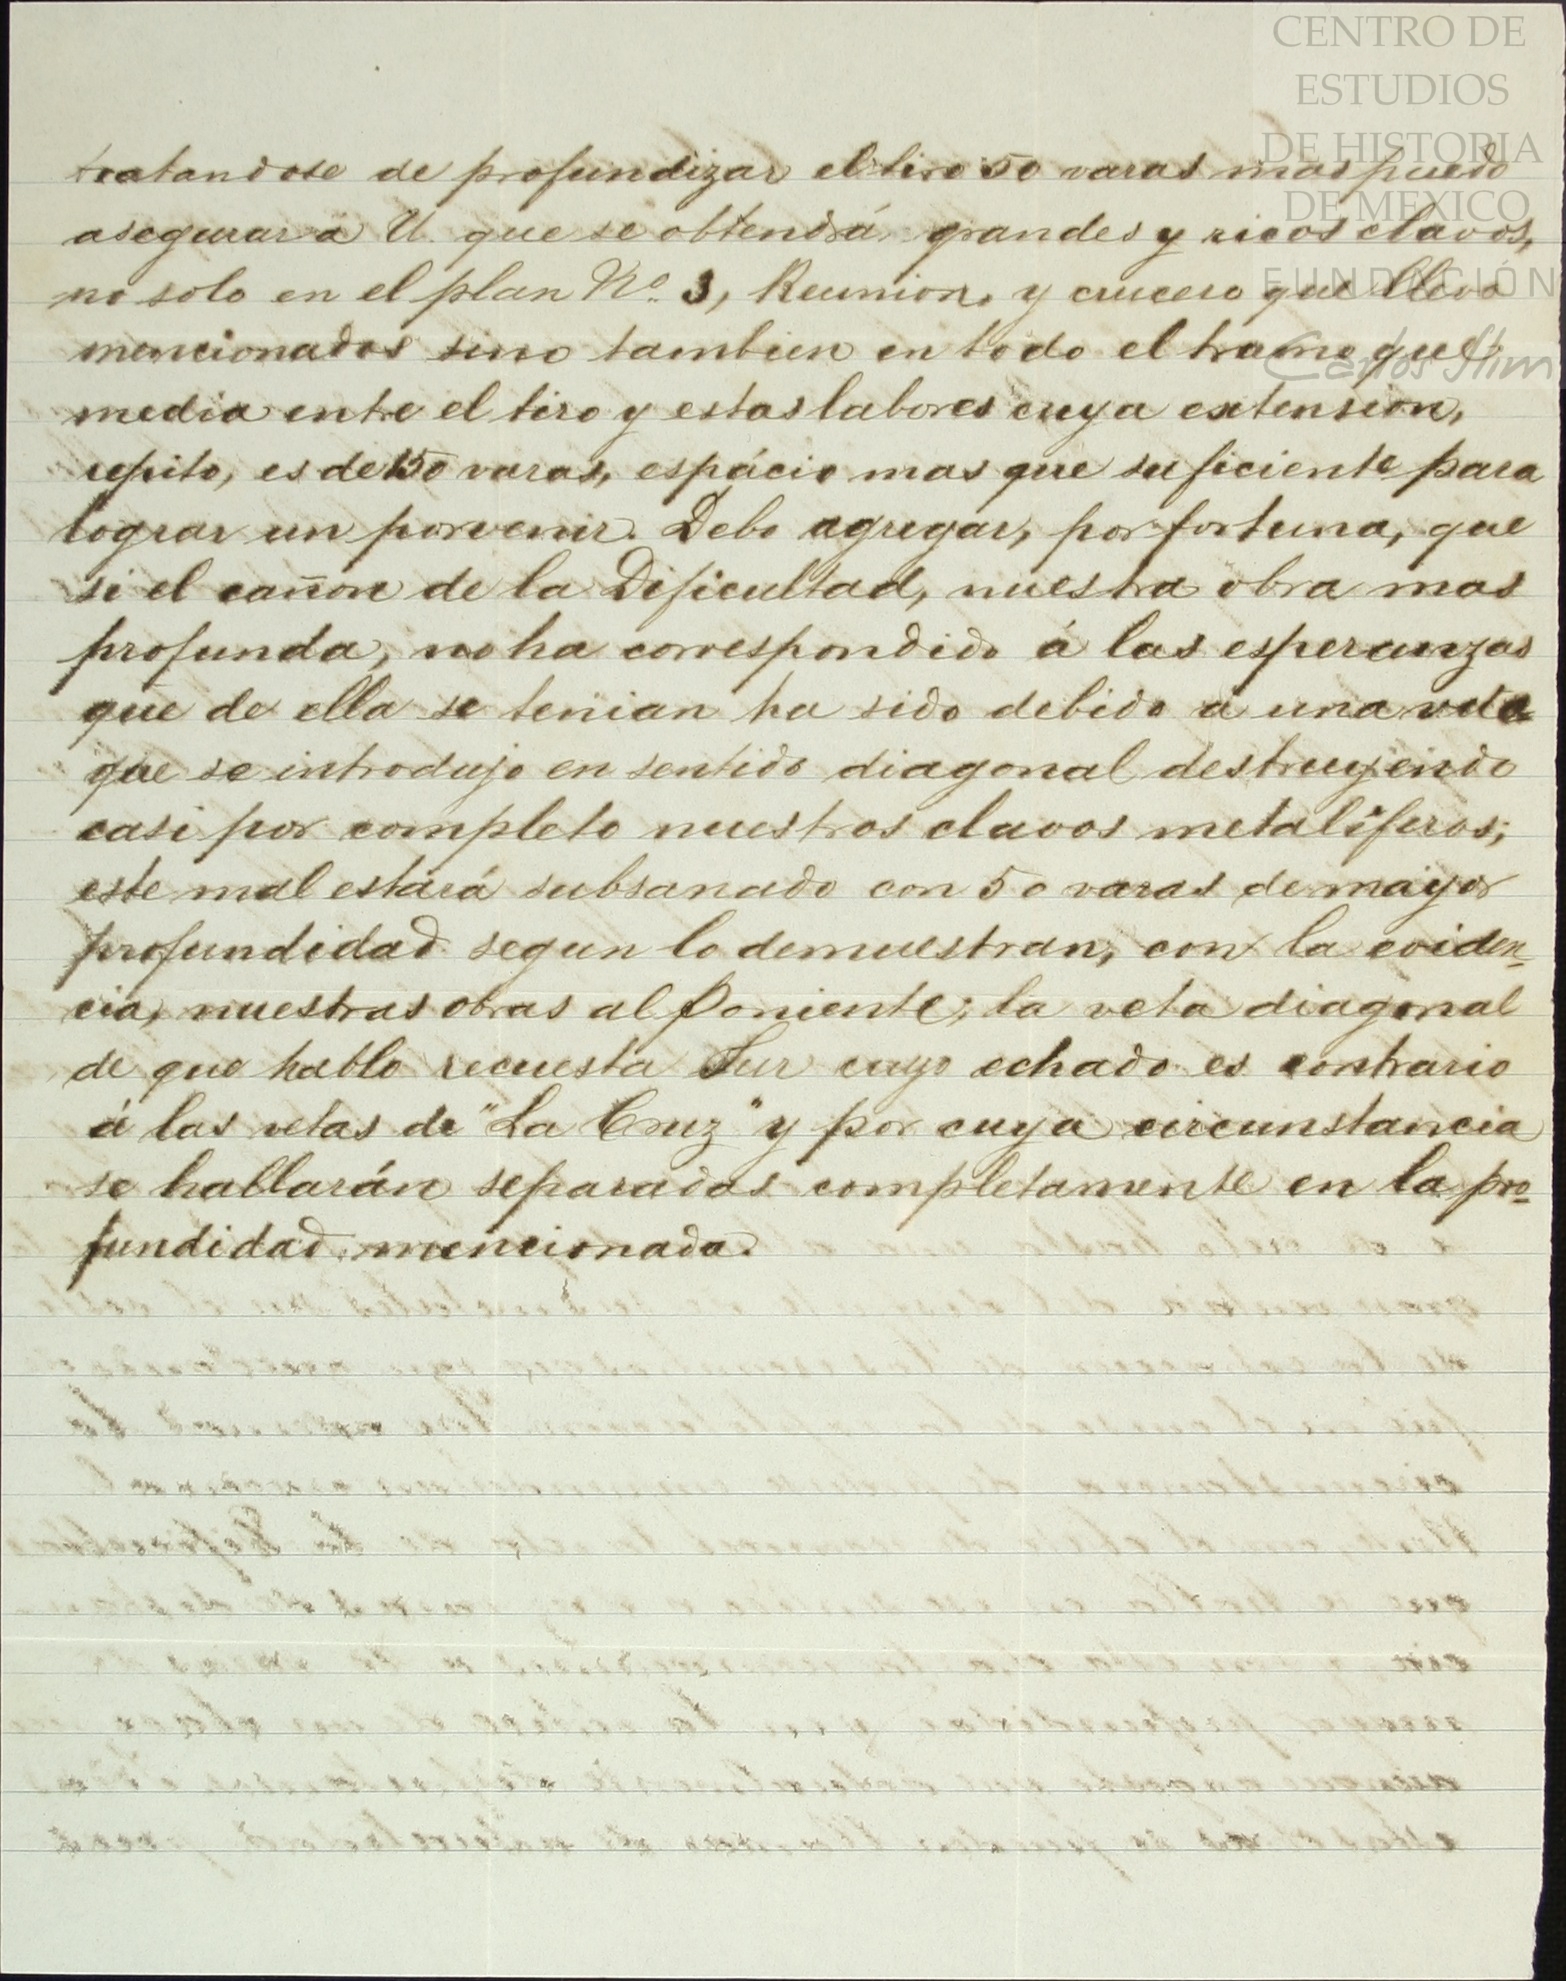 CENTRO DE
ESTUDIOS
DE HISTORIA
DE MEXICO
FUNDACIÓN
Carlos Slim
tratandose de profundizar el tiro 50 varas mas puedo
asegurar a U. que se obtendrá grandes y ricos clavos,
no solo en el plan No. 3, Reunion, y crucero que llevo
mencionados sino tambien en todo el tramo que
media entre el tiro y estas labores cuya extension,
repito, es de 150 varas, espácio mas que suficiente para
lograr un porvenir. Debo agregar, por fortuna, que
si el cañon de la Dificultad, nuestra obra mas
profunda, no ha correspondido á las esperanzas
que de ella se tenian ha sido debido a una veta
que se introdujo en sentido diagonal destruyendo
casi por completo nuestros clavos metalíferos;
este mal estará subsanado con 50 varas de mayor
profundidad segun lo demuestran, con la eviden-
cia, nuestras obras al Poniente; la veta diagonal
de que hablo recuesta Sur cuyo echado es contrario
á las vetas de "La Cruz" y por cuya circunstancia
se hallarán separadas completamente en la pro-
fundidad mencionada.